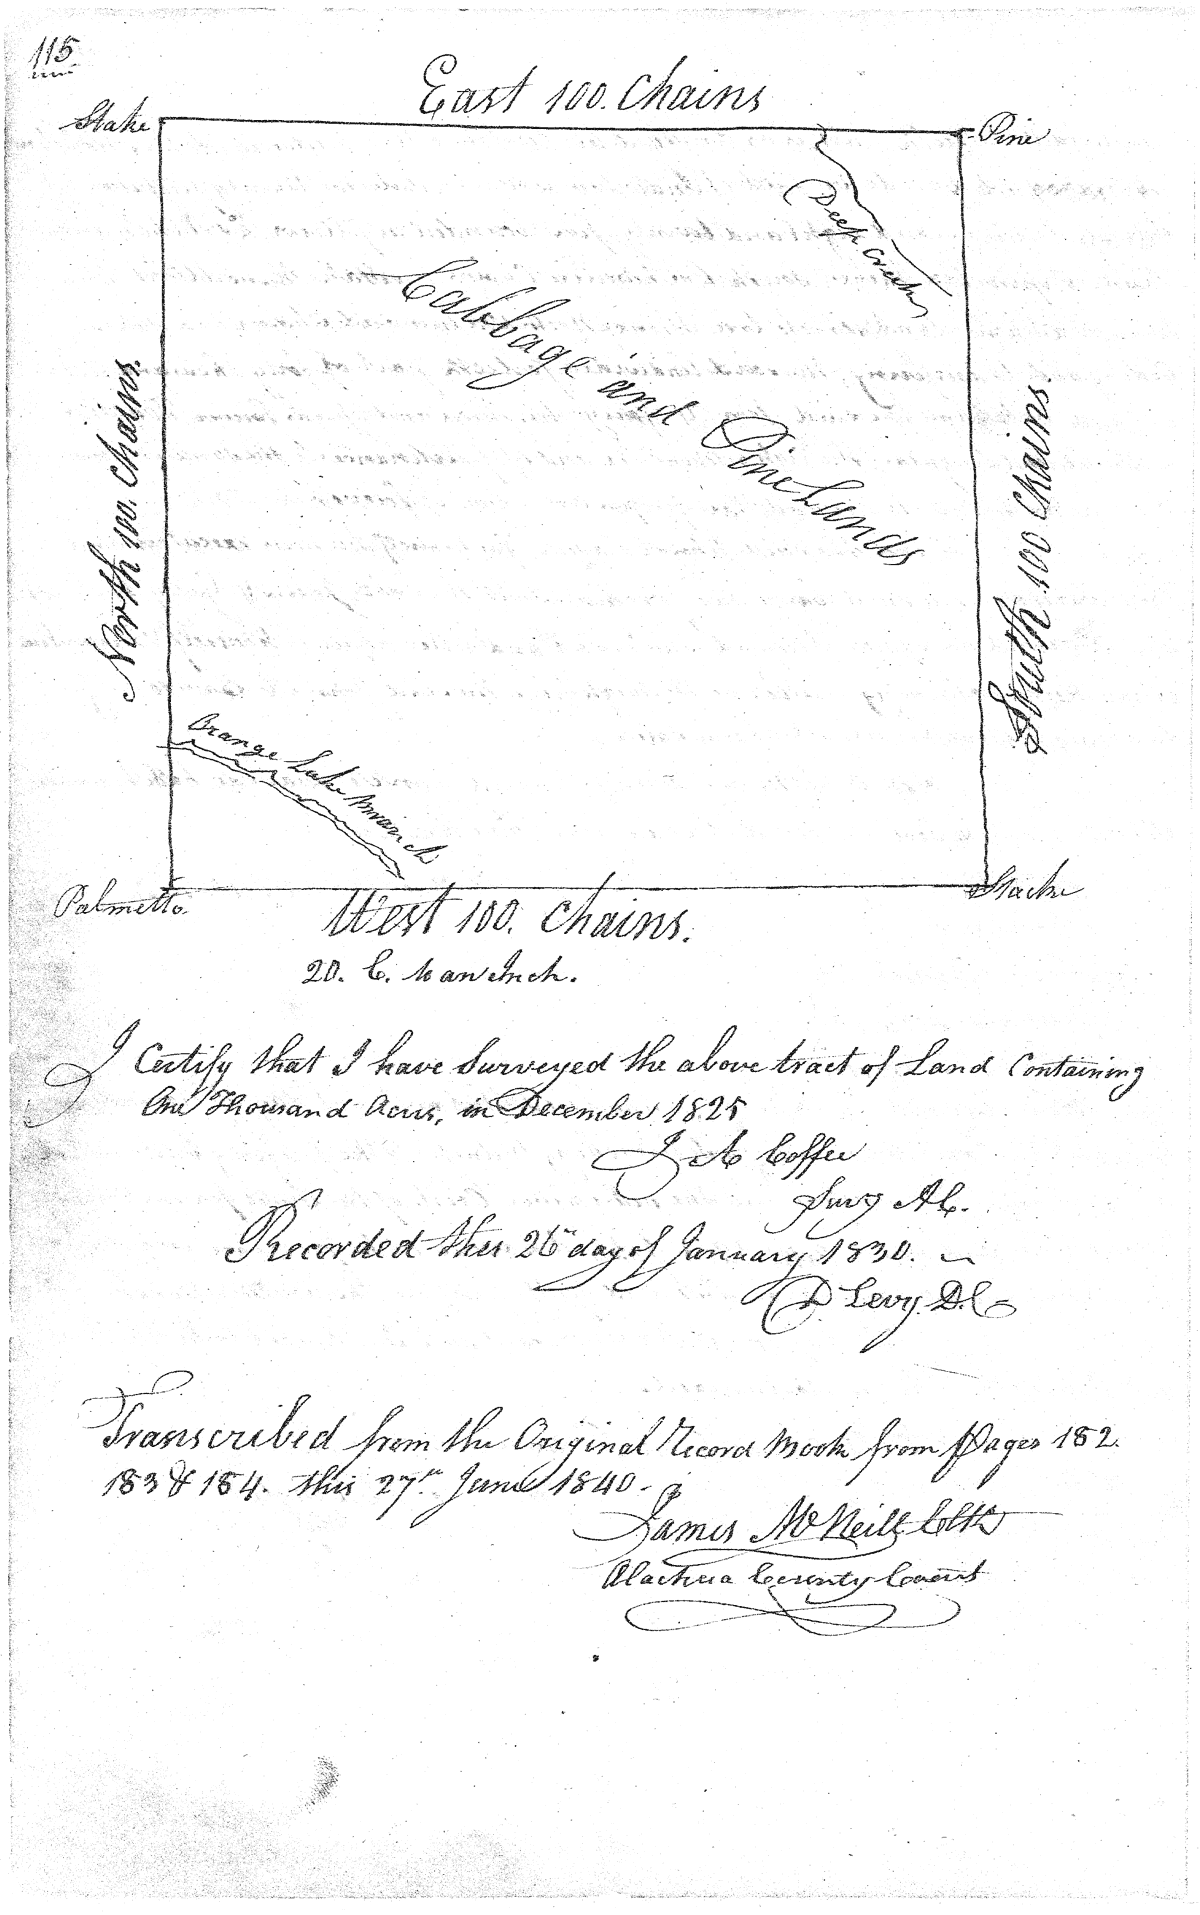 115
East 100. Chains
Stake
Pine
Deep Creek
Cabbage and Pine Lands
North 100. Chains.
South 100 Chains.
Orange Lake Branch
Palmetto.
Stacke
West 100. Chains.
20. C. to an Inch.
I Certify that I have Surveyed the above tract of Land Containing
One Thousand Acres, in December 1825
J A Coffee
Surv A C.
Recorded this 26th day of January 1830.
D Levy D.C
Transcribed from the Original Record Book from Pages 182.
183 & 184. this 27th June 1840.
James McNeill Clk
Alachua County Court